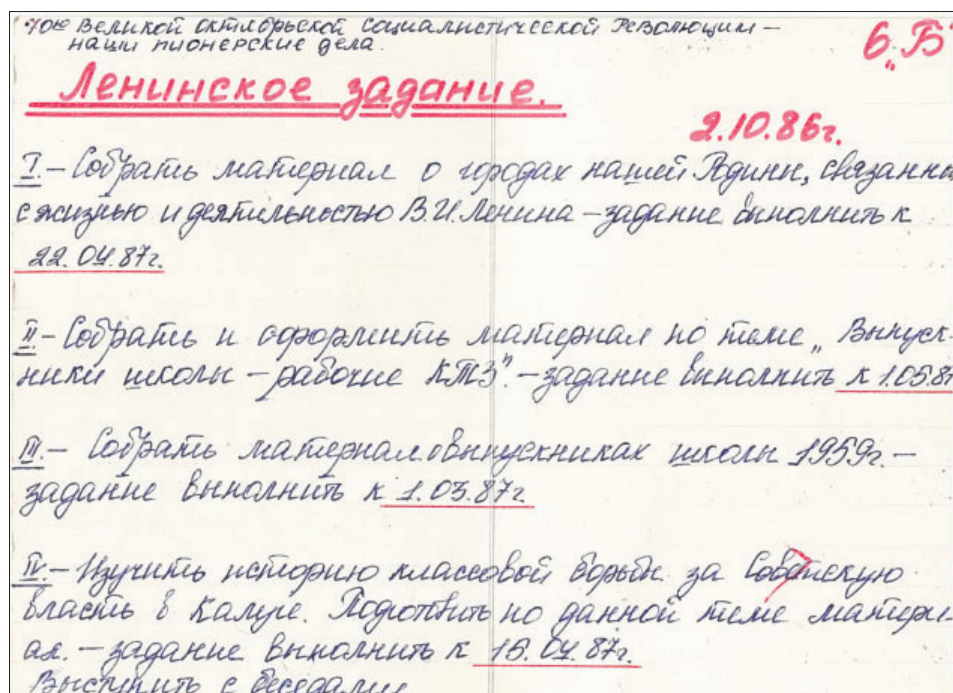 70ю Великой октябрьской социалистической Революции –
наши пионерские дела.
6 „Б"
Ленинское задание.
2.10.86г.
I. – Собрать материал о городах нашей Родины, связанны
с жизнью и деятельностью В.И. Ленина – задание выполнить к
22.04.87г.
II – Собрать и оформить материал по теме „Выпуск-
ники школы – рабочие КТЗ". – задание выполнить к 1.05.87
III. – Собрать материал о выпускниках школы 1959г. –
задание выполнить к 1.03.87г
IV. – Изучить историю классовой борьбы за Советскую
власть в Калуге. Подготовить по данной теме матери-
ал. – задание выполнить к 15.04.87г.
Выступить с беседами